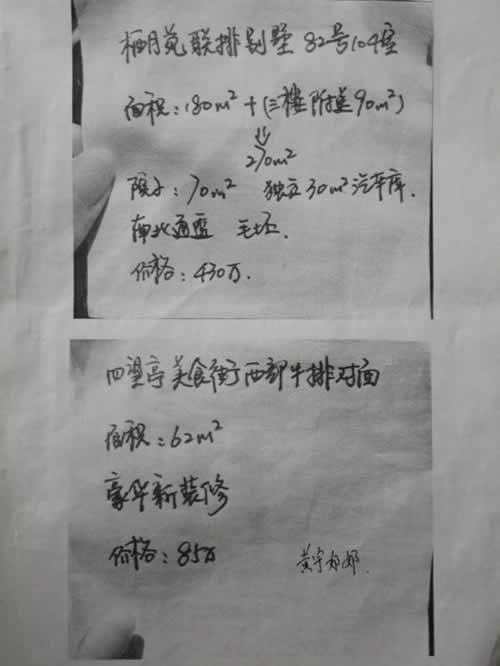 栖月苑联排别墅 82号104室
面积：180m² +（三楼附送90m²）
⇓
270m²
院子：70m² 独立30m²汽车库.
南北通透 毛坯.
价格：430万.
四望亭美食街西部牛排对面
面积：62m²
豪华新装修
价格：85万
黄宇